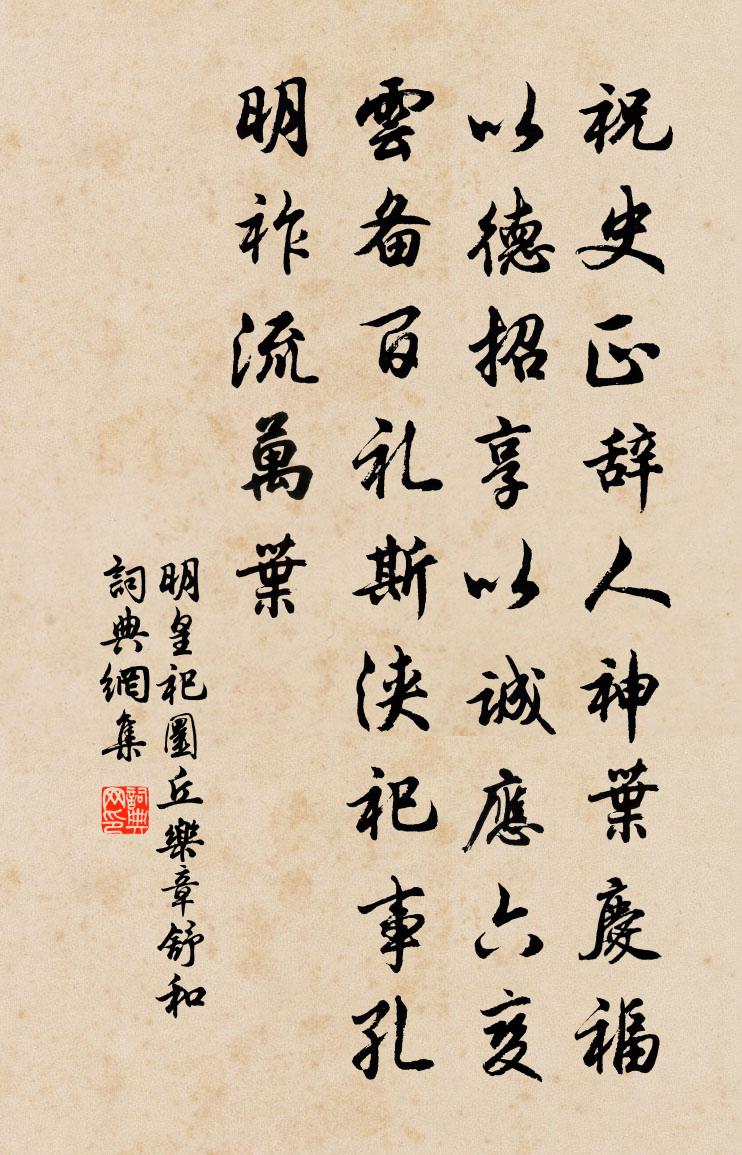 祝史正辞人神葉慶福
以德招享以诚應六变
雲备百礼斯浃祀事孔
明祚流萬葉
明皇祀圜丘樂章舒和
詞典網集
詞典网印